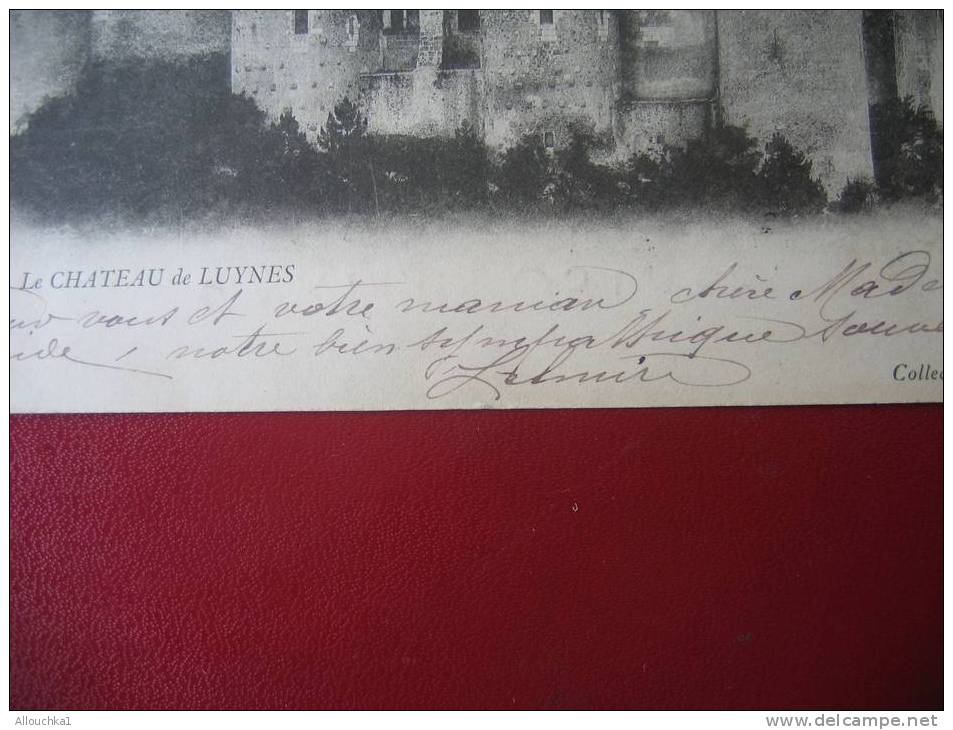 Le CHATEAU de LUYNES
vous et votre maman chère Mad
notre bien sympathique souve
Collec
Allouchka1
www.delcampe.net